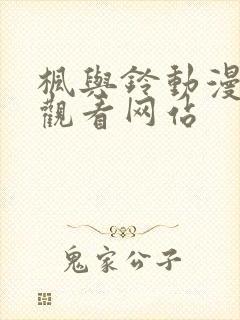 楓與鈴動漫
觀看网佔
鬼家公子